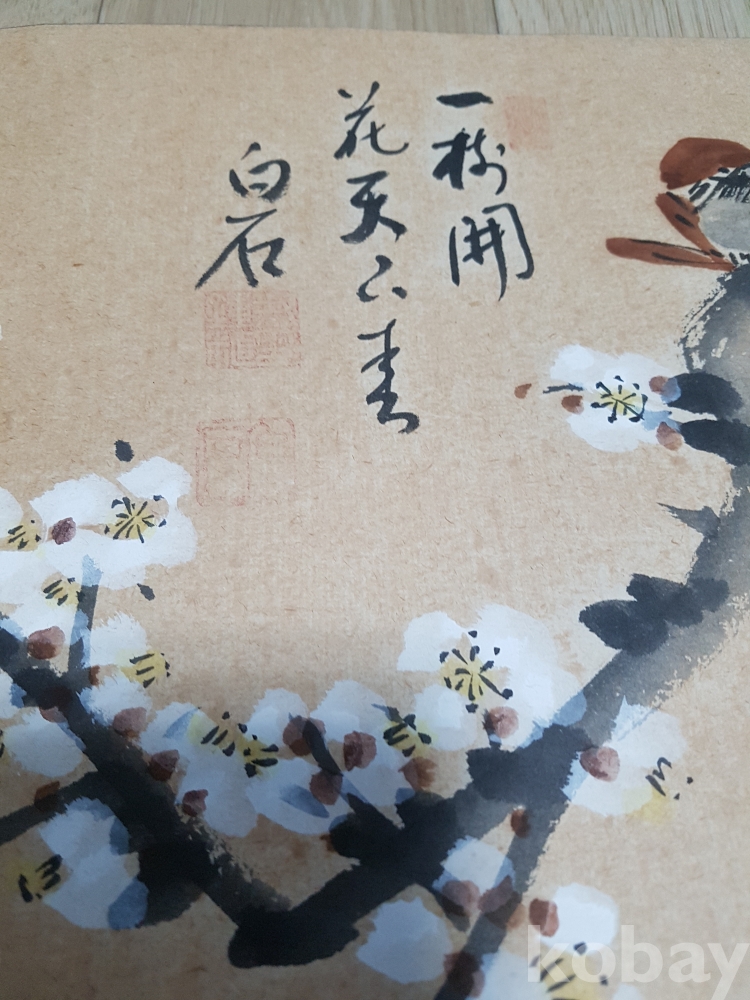 一樹開
花天下春
白石
kobay